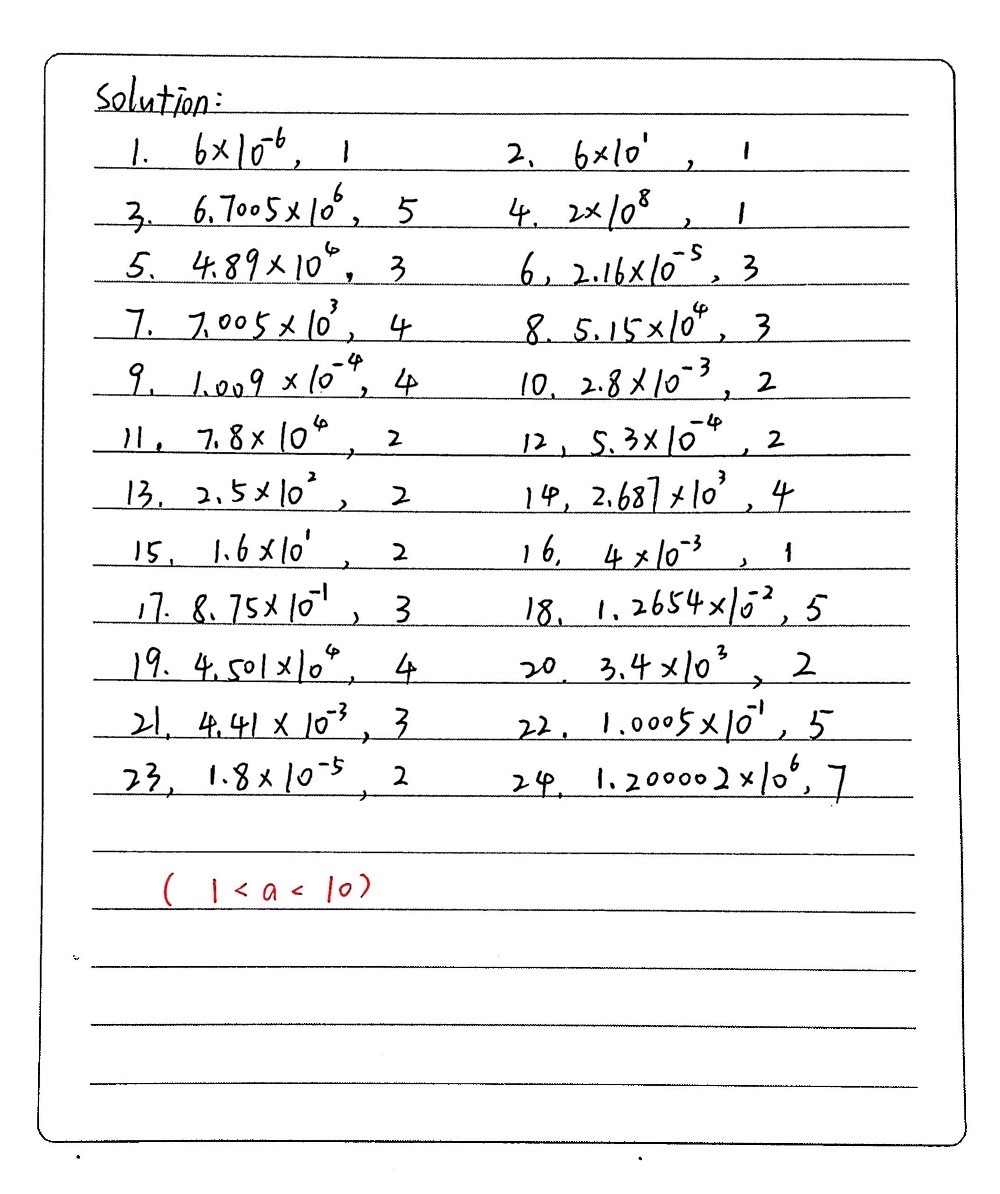 Solution:
1. 6×10⁻⁶, 1 2. 6×10¹, 1
3. 6.7005×10⁶, 5 4. 2×10⁸, 1
5. 4.89×10⁴, 3 6, 2.16×10⁻⁵, 3
7. 7.005×10³, 4 8. 5.15×10⁴, 3
9. 1.009×10⁻⁴, 4 10. 2.8×10⁻³, 2
11. 7.8×10⁴, 2 12, 5.3×10⁻⁴, 2
13. 2.5×10², 2 14, 2.687×10³, 4
15. 1.6×10¹, 2 16. 4×10⁻³, 1
17. 8.75×10⁻¹, 3 18. 1.2654×10⁻², 5
19. 4.501×10⁴, 4 20. 3.4×10³, 2
21, 4.41×10⁻³, 3 22. 1.0005×10⁻¹, 5
23, 1.8×10⁻⁵, 2 24. 1.200002×10⁶, 7
( 1 < a < 10)